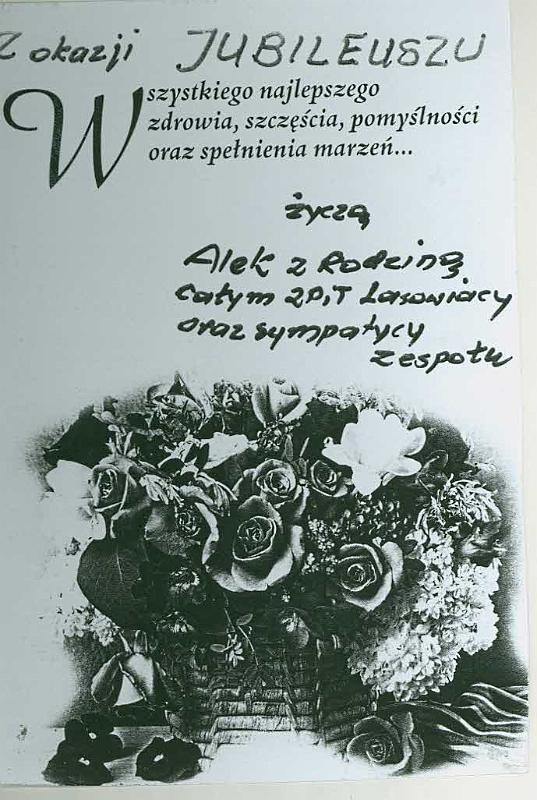 Z okazji JUBILEUSZU
Wszystkiego najlepszego
zdrowia, szczęścia, pomyślności
oraz spełnienia marzeń...
życzą
Alek z Rodziną
całym ZPiT Lasowiacy
oraz sympatycy
zespołu